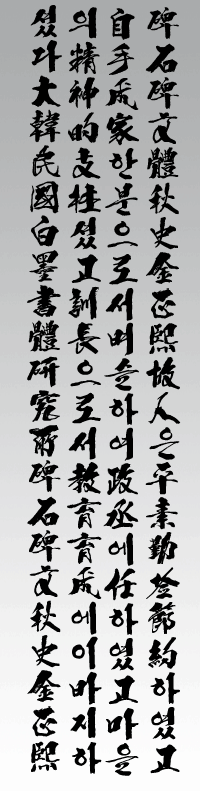 碑石碑文體秋史金正熙故人은平素勤儉節約하였고
自手成家한분으로서머슴하여政丞에任하였고마을
의精神的支柱셨고訓長으로서教育育成에이바지하
셨다大韓民國白墨書體研究所碑石碑文秋史金正熙